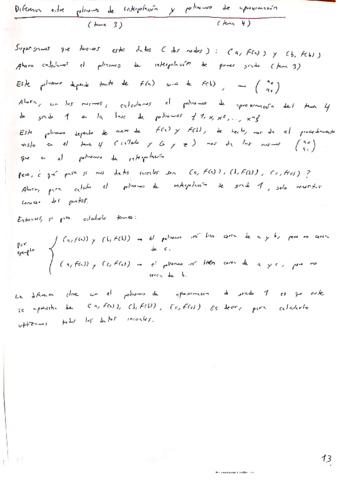 Diferencia entre polinomio de interpolación y polinomio de aproximación
(tema 3) (tema 4)
Supongamos que tenemos estos datos (dos nodos): (a, f(a)) y (b, f(b))
Ahora calculamos el polinomio de interpolación de primer grado (tema 3)
Este polinomio depende tanto de f(a) como de f(b),
Ahora, con los mismos, calculamos el polinomio de aproximación del tema 4
de grado 1 en la base de polinomios {1, x, x², ..., xⁿ}
Este polinomio depende de f(a) y f(b), de hecho, nos da el procedimiento
visto en el tema 4 (cálculo y G y z) nos da los mismos
que en el polinomio de interpolación
Pero, ¿qué pasa si mis datos iniciales son (a, f(a)), (b, f(b)), (c, f(c))?
Ahora, para calcular el polinomio de interpolación de grado 1, solo necesitas
conocer dos puntos.
Entonces, si para calcularlo tomamos:
Por ejemplo
(a, f(a)) y (b, f(b)) → el polinomio irá bien cerca de a y b, pero no cerca
de c.
(a, f(a)) y (c, f(c)) → el polinomio irá bien cerca de a y c, pero no
cerca de b.
La diferencia clave con el polinomio de aproximación de grado 1 es que este
se aproxima de (a, f(a)), (b, f(b)), (c, f(c)). Es decir, para calcularlo
utilizamos todos los datos iniciales.
13